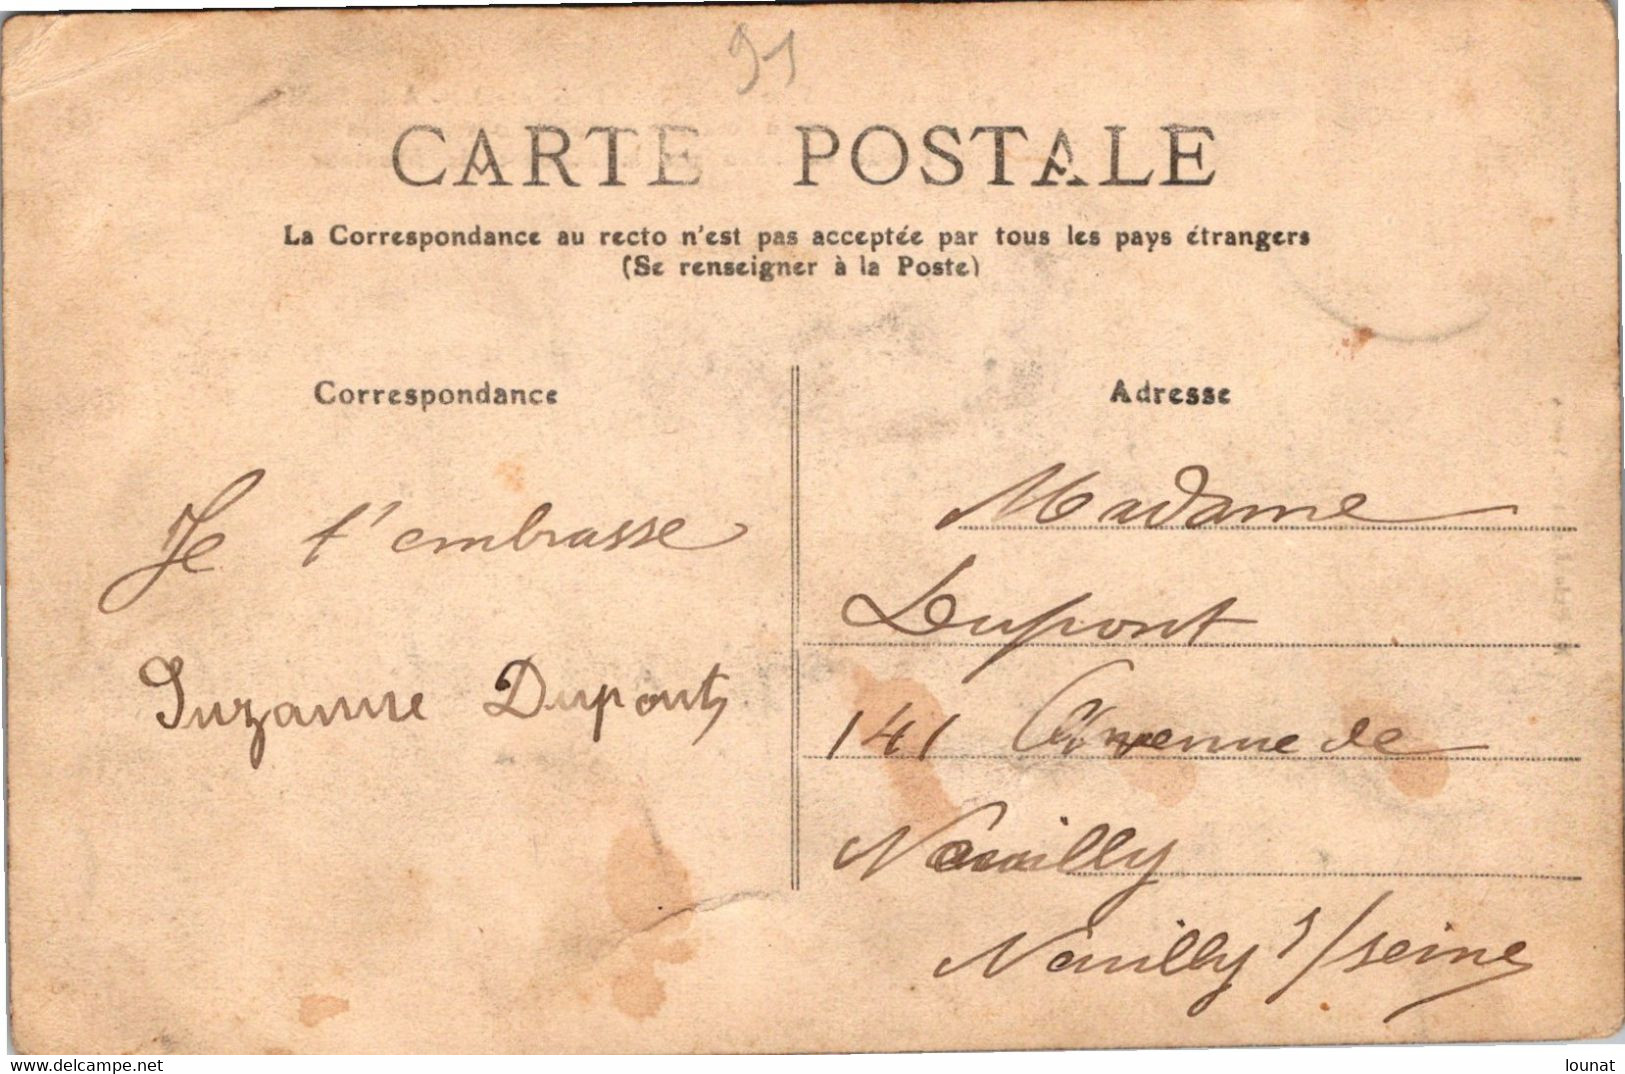 91
CARTE POSTALE
La Correspondance au recto n'est pas acceptée par tous les pays étrangers
(Se renseigner à la Poste)
Correspondance
Je t'embrasse
Suzanne Dupont
Adresse
Madame
Dupont
141 Avenue de
Neuilly
Neuilly s/seine
www.delcampe.net
lounat